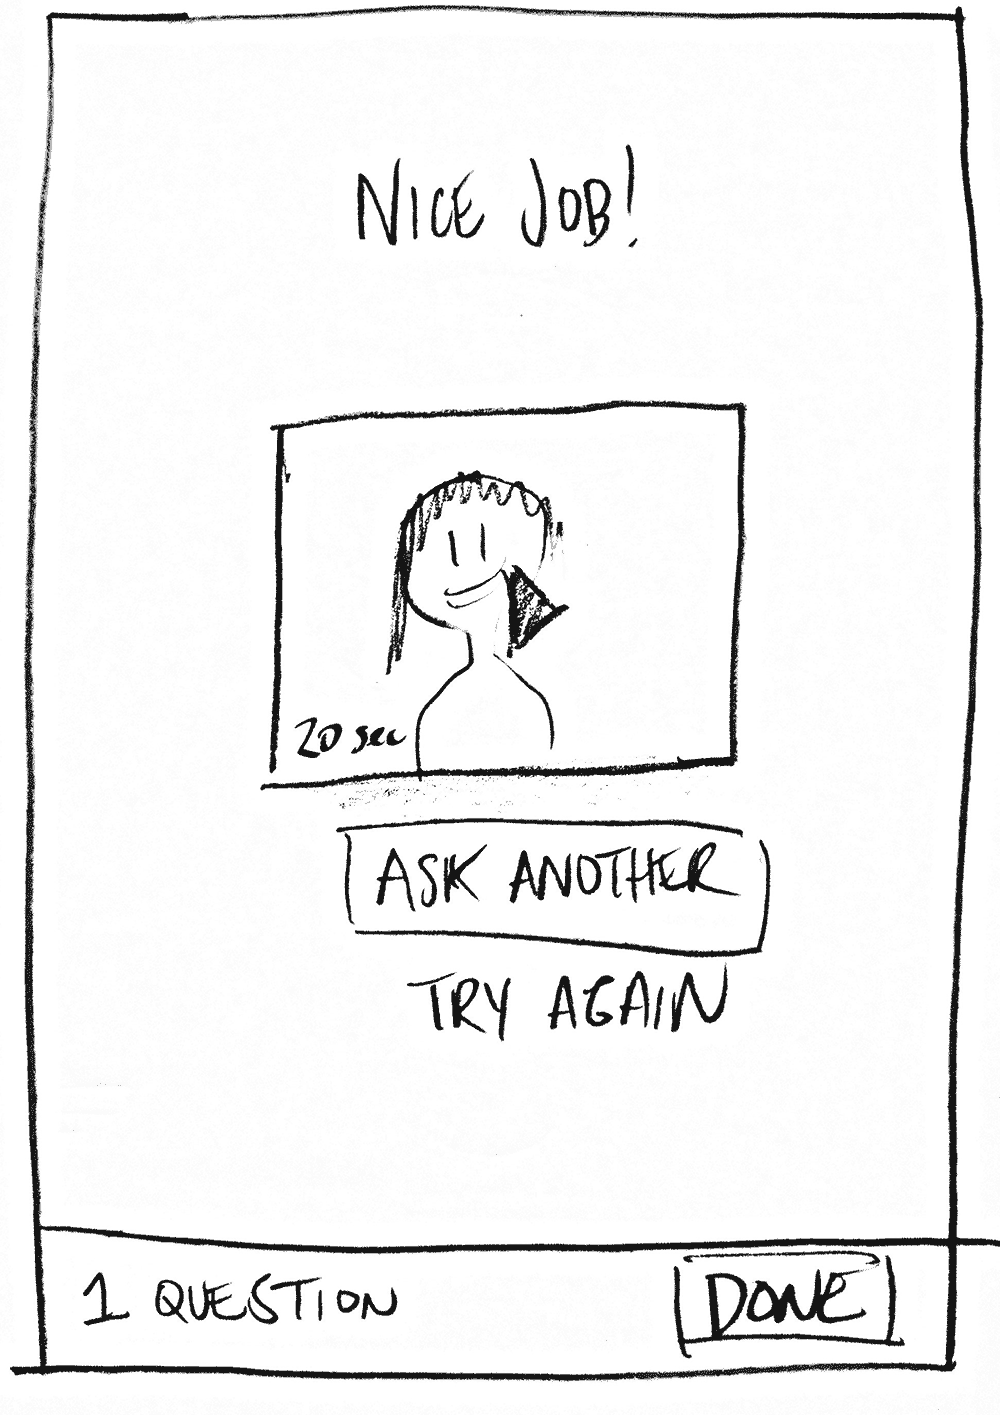 NICE JOB!
20 sec
ASK ANOTHER
TRY AGAIN
1 QUESTION
DONE